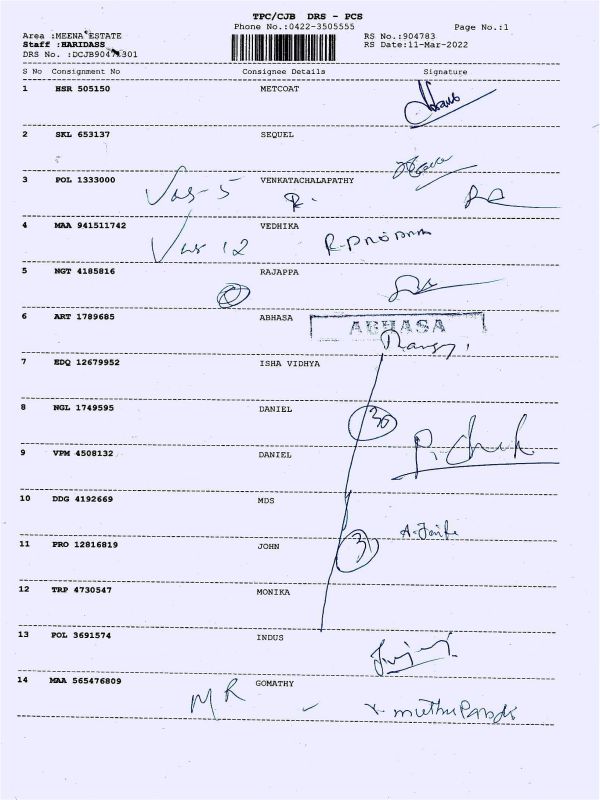 TPC/CJB DRS - PCS
Phone No.:0422-3505555 Page No.:1
Area :MEENA ESTATE RS No. :904783
Staff :HARIDASS RS Date:11-Mar-2022
DRS No. :DCJB904783301
S No Consignment No Consignee Details Signature
1 HSR 505150 METCOAT
2 SKL 653137 SEQUEL
3 POL 1333000 VENKATACHALAPATHY
R.
4 MAA 941511742 VEDHIKA
12 R.
5 NGT 4185816 RAJAPPA
6 ART 1789685 ABHASA
ABHASA
7 EDQ 12679952 ISHA VIDHYA
8 NGL 1749595 DANIEL
30
9 VPM 4508132 DANIEL
10 DDG 4192669 MDS
11 PRO 12816819 JOHN
12 TRP 4730547 MONIKA
13 POL 3691574 INDUS
14 MAA 565476809 GOMATHY
MR